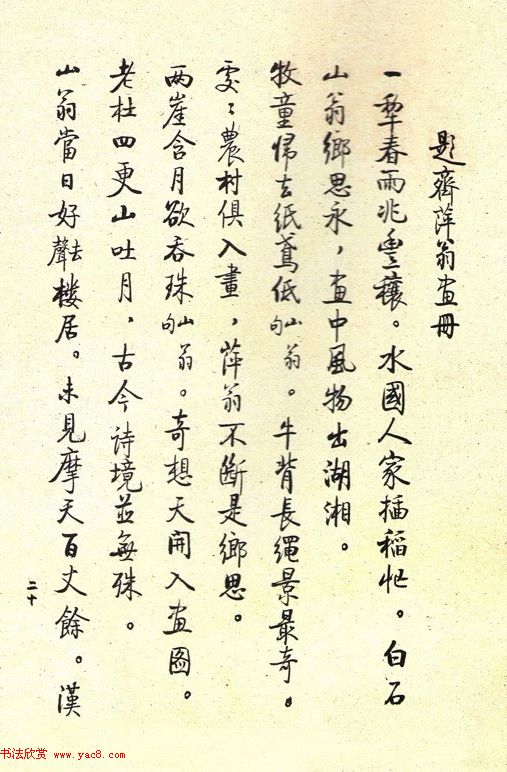 題齊萍翁畫冊
一犂春雨兆豐穰。水國人家插稻忙。白石
山翁鄉思永,畫中風物出湖湘。
牧童歸去紙鳶低山翁句。牛背長繩景最奇。
處〻農村俱入畫,萍翁不斷是鄉思。
兩崖含月欲吞珠山翁句。奇想天開入畫圖。
老杜四更山吐月,古今詩境並無殊。
山翁當日好去聲樓居。未見摩天百丈餘。漢
二十
书法欣赏 www.yac8.com